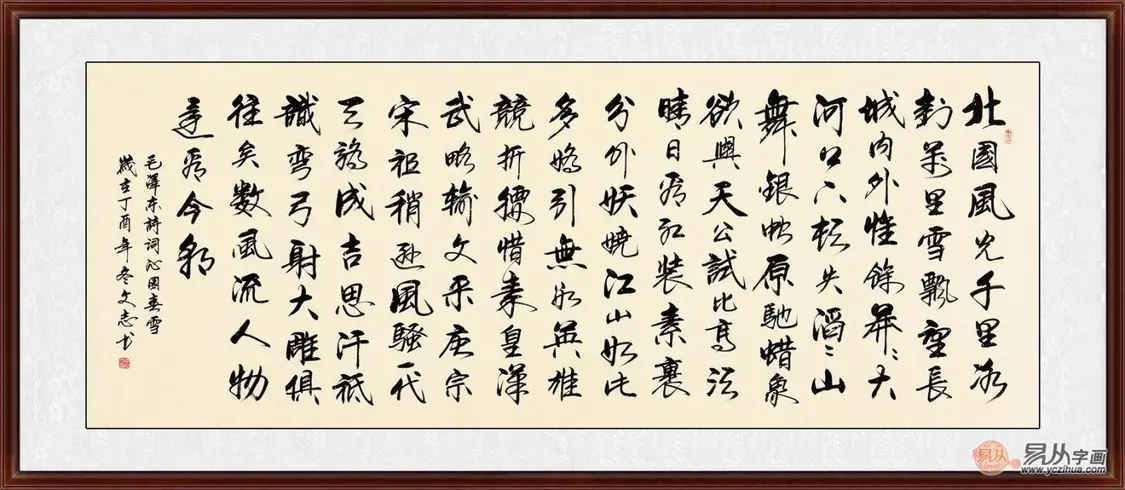 北國風光千里冰
封萬里雪飄望長
城内外惟餘莽〻大
河上下頓失滔〻山
舞銀蛇原馳蜡象
欲與天公試比高須
晴日看紅裝素裹
分外妖嬈江山如此
多嬌引無數英雄
競折腰惜秦皇漢
武略輸文采唐宗
宋祖稍遜風騷一代
天驕成吉思汗祗
識彎弓射大雕俱
往矣數風流人物
還看今朝
毛澤東詩詞沁園春雪
歲在丁酉年冬文志书
易从
易从字画
www.yczihua.com